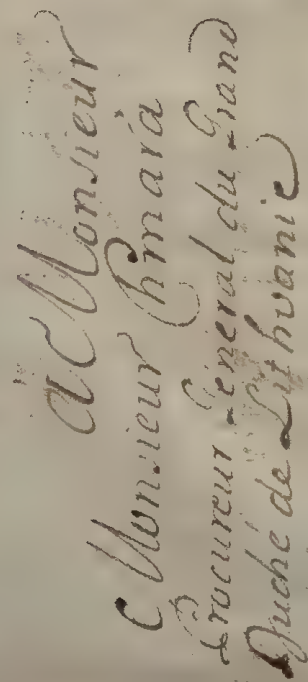 A Monsieur
Monsieur Chmara
Procureur General du Grand
Duché de Lithvanie